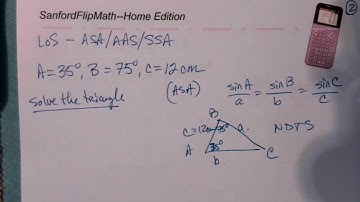 SanfordFlipMath--Home Edition
2
LoS – ASA/AAS/SSA
A = 35°, B = 75°, c = 12 cm
Solve the triangle
(ASA)
sin A / a = sin B / b = sin C / c
B
c = 12 75° a
NDTS
A 35° C
b